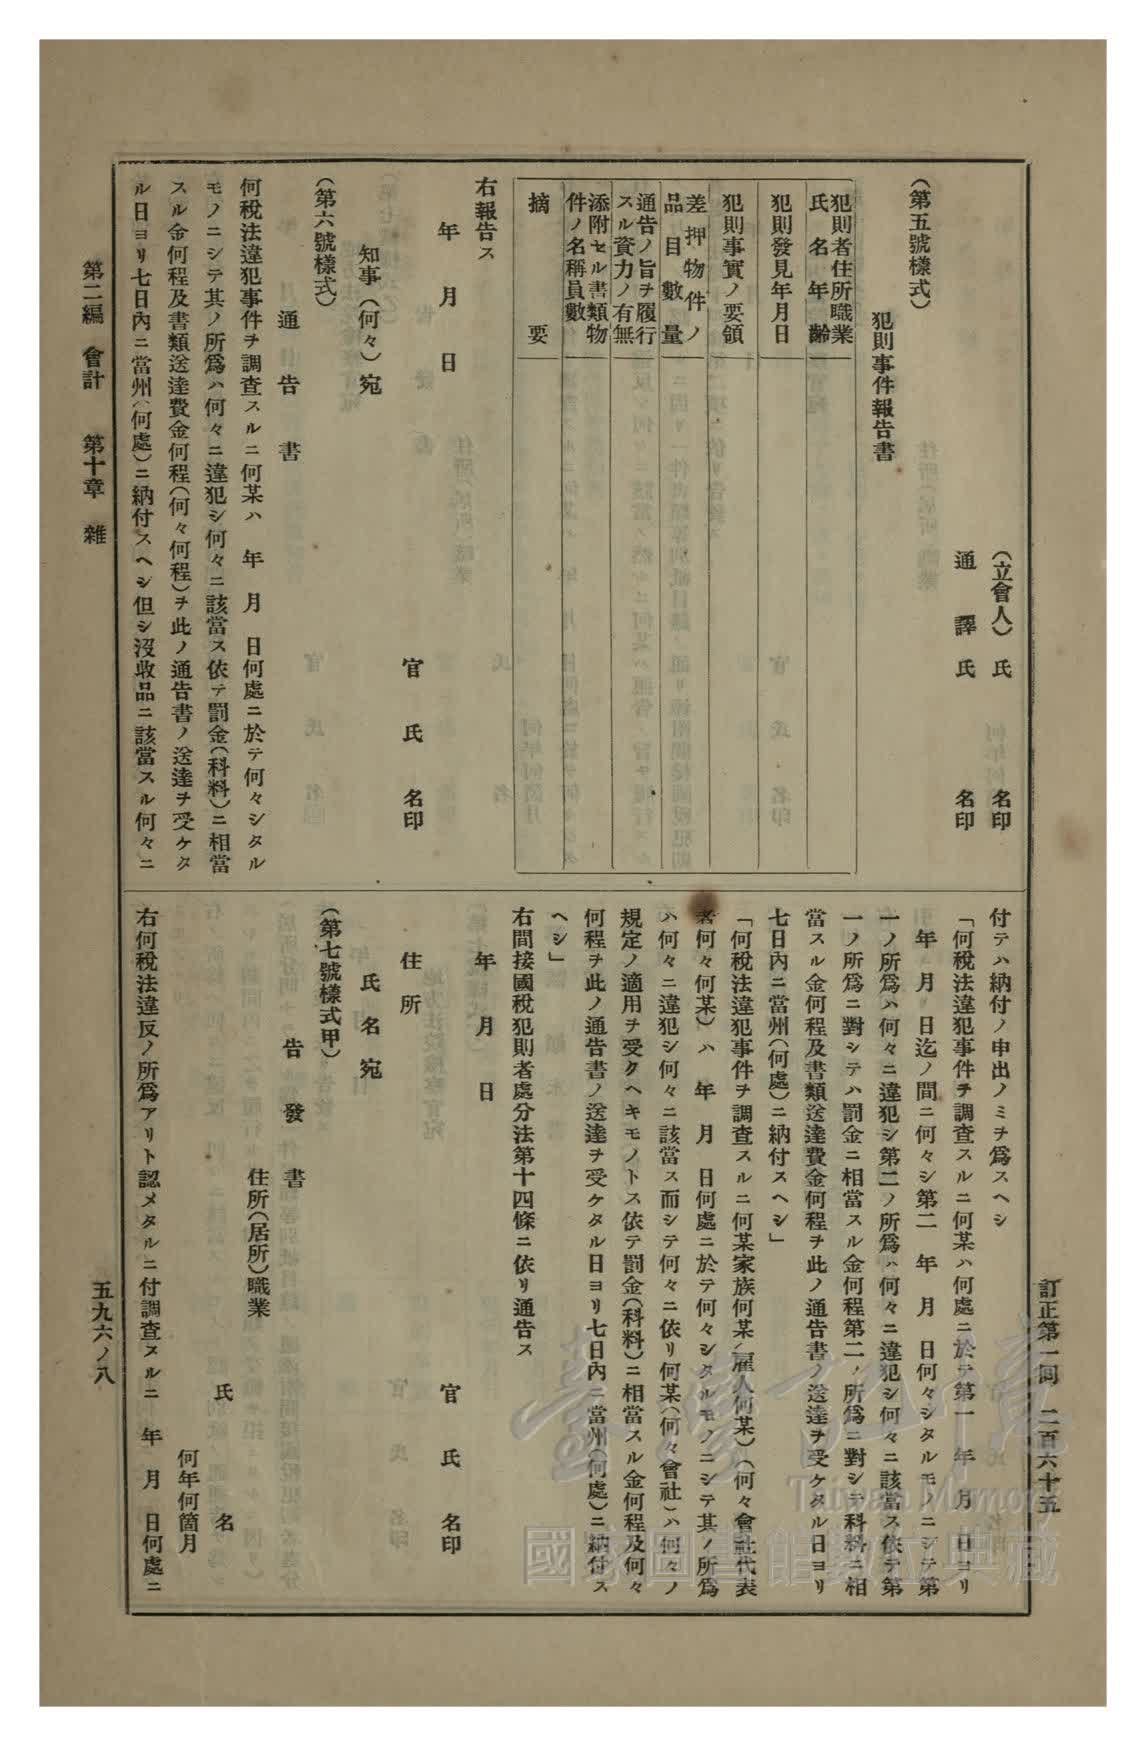 訂正第一回　二百六十五
（立會人）　氏　名印
通譯　氏　名印
（第五號樣式）
犯則事件報告書
犯則者住所職業
氏名年齡
犯則發見年月日
犯則事實ノ要領
差押物件ノ
品目數量
通告ノ旨ヲ履行
スル資力ノ有無
添附セル書類物
件ノ名稱員數
摘要
右報告ス
年　月　日
官　氏　名印
知事（何々）宛
（第六號樣式）
通告書
何稅法違犯事件ヲ調查スルニ何某ハ　年　月　日何處ニ於テ何々シタル
モノニシテ其ノ所爲ハ何々ニ違犯シ何々ニ該當ス依テ罰金（科料）ニ相當
スル金何程及書類送達費金何程（何々何程）ヲ此ノ通告書ノ送達ヲ受ケタ
ル日ヨリ七日內ニ當州（何處）ニ納付スヘシ但シ沒收品ニ該當スル何々ニ
付テハ納付ノ申出ノミヲ爲スヘシ
「何稅法違犯事件ヲ調查スルニ何某ハ何處ニ於テ第一　年　月　日ヨリ
年　月　日迄ノ間ニ何々シ第二　年　月　日何々シタルモノニシテ第
一ノ所爲ハ何々ニ違犯シ第二ノ所爲ハ何々ニ違犯シ何々ニ該當ス依テ第
一ノ所爲ニ對シテハ罰金ニ相當スル金何程第二ノ所爲ニ對シテ科料ニ相
當スル金何程及書類送達費金何程ヲ此ノ通告書ノ送達ヲ受ケタル日ヨリ
七日內ニ當州（何處）ニ納付スヘシ」
「何稅法違犯事件ヲ調查スルニ何某家族何某（雇人何某）（何々會社代表
者何々何某）ハ　年　月　日何處ニ於テ何々シタルモノニシテ其ノ所爲
ハ何々ニ違犯シ何々ニ該當ス而シテ何々ニ依リ何某（何々會社）ハ何々ノ
規定ノ適用ヲ受クヘキモノトス依テ罰金（科料）ニ相當スル金何程及何々
何程ヲ此ノ通告書ノ送達ヲ受ケタル日ヨリ七日內ニ當州（何處）ニ納付ス
ヘシ」
右間接國稅犯則者處分法第十四條ニ依リ通告ス
年　月　日
官　氏　名印
住所
氏名宛
（第七號樣式甲）
告發書
住所（居所）職業
氏　名
何年何箇月
右何稅法違反ノ所爲アリト認メタルニ付調查スルニ　年　月　日何處ニ
第二編　會計　第十章　雜
五九六ノ八
臺灣記憶
Taiwan Memory
國家圖書館數位典藏